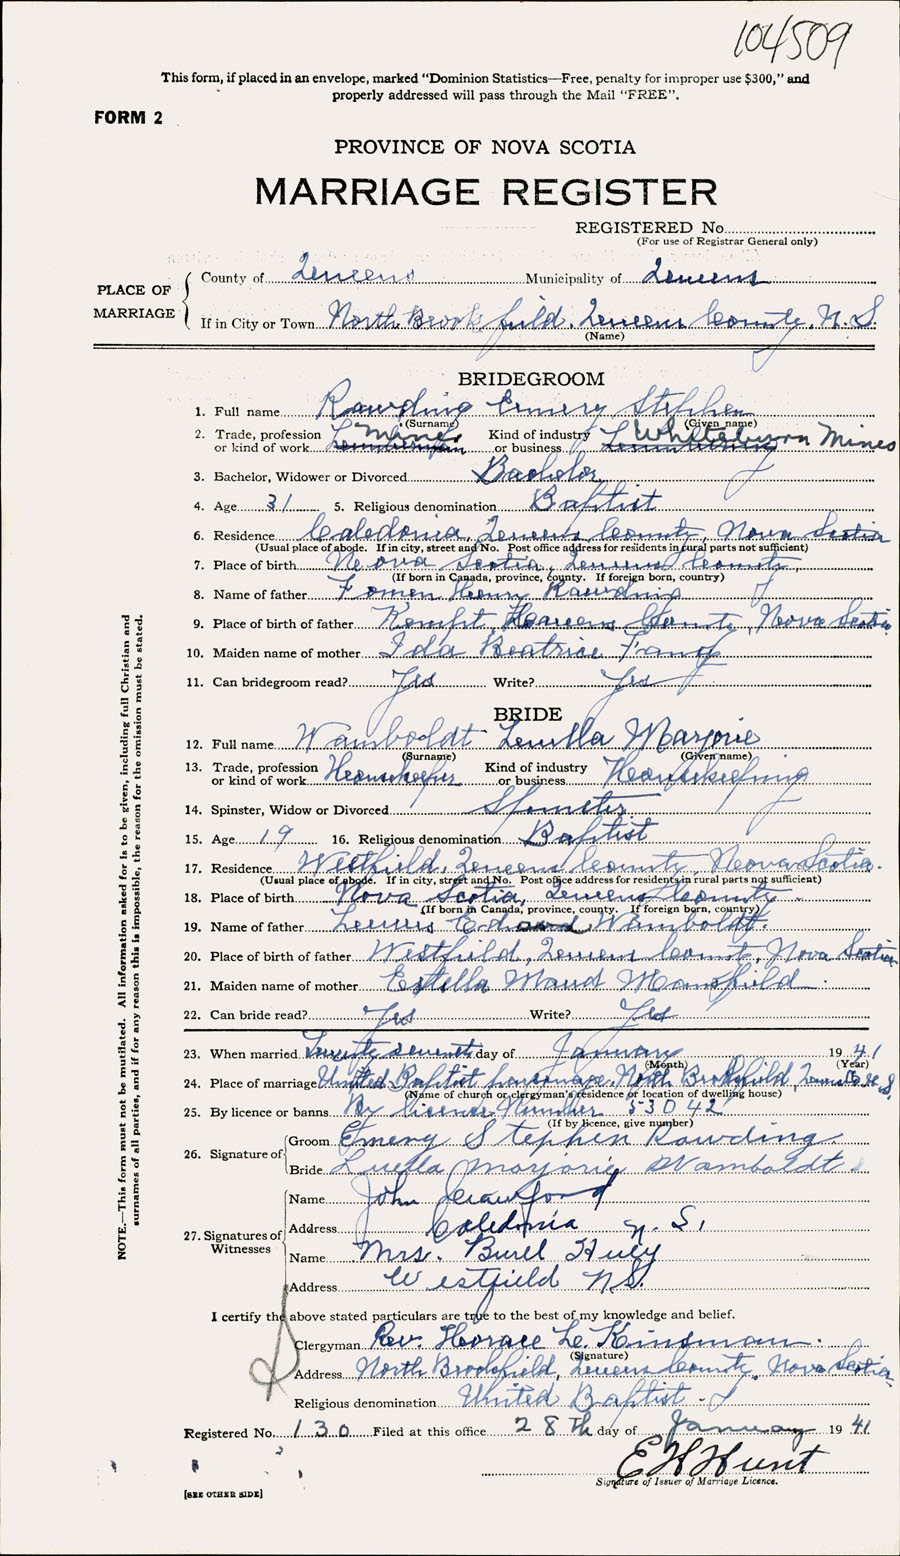 104509
This form, if placed in an envelope, marked "Dominion Statistics—Free, penalty for improper use $300," and
properly addressed will pass through the Mail "FREE".
FORM 2
PROVINCE OF NOVA SCOTIA
MARRIAGE REGISTER
REGISTERED No.
(For use of Registrar General only)
PLACE OF MARRIAGE
County of Queens Municipality of Queens
If in City or Town North Brookfield, Queens County, N.S.
(Name)
BRIDEGROOM
1. Full name Rawding Emery Stephen
(Surname) (Given name)
2. Trade, profession or kind of work Miner Kind of industry or business Whiteburn Mines
3. Bachelor, Widower or Divorced Bachelor
4. Age 31 5. Religious denomination Baptist
6. Residence Caledonia, Queens County, Nova Scotia
(Usual place of abode. If in city, street and No. Post office address for residents in rural parts not sufficient)
7. Place of birth Nova Scotia, Queens County
(If born in Canada, province, county. If foreign born, country)
8. Name of father Henry Rawding
9. Place of birth of father Kempt, Queens County, Nova Scotia
10. Maiden name of mother Ida Beatrice
11. Can bridegroom read? Yes Write? Yes
BRIDE
12. Full name Wamboldt Luella Marjorie
(Surname) (Given name)
13. Trade, profession or kind of work Housekeeper Kind of industry or business Housekeeping
14. Spinster, Widow or Divorced Spinster
15. Age 19 16. Religious denomination Baptist
17. Residence Westfield, Queens County Nova Scotia.
(Usual place of abode. If in city, street and No. Post office address for residents in rural parts not sufficient)
18. Place of birth Nova Scotia, Queens County
(If born in Canada, province, county. If foreign born, country)
19. Name of father Edward Wamboldt.
20. Place of birth of father Westfield, Queens County, Nova Scotia
21. Maiden name of mother Estella Maud Mansfield
22. Can bride read? Yes Write? Yes
23. When married Twenty seventh day of January 1941
(Month) (Year)
24. Place of marriage United Baptist parsonage, North Brookfield, Queens Co. N.S.
(Name of church or clergyman's residence or location of dwelling house)
25. By licence or banns By licence Number 53042
(If by licence, give number)
26. Signature of
Groom Emery Stephen Rawding
Bride Luella Marjorie Wamboldt
27. Signatures of Witnesses
Name John Crawford
Address Caledonia N.S.
Name Mrs. Burel Huey
Address Westfield N.S.
I certify the above stated particulars are true to the best of my knowledge and belief.
Clergyman Rev. Horace L. Kinsman.
(Signature)
Address North Brookfield, Queens County, Nova Scotia
Religious denomination United Baptist
Registered No. 130 Filed at this office 28th day of January 1941
E H Hunt
Signature of Issuer of Marriage Licence.
[SEE OTHER SIDE]
NOTE.—This form must not be mutilated. All information asked for is to be given, including full Christian and
surnames of all parties, and if for any reason this is impossible, the reason for the omission must be stated.